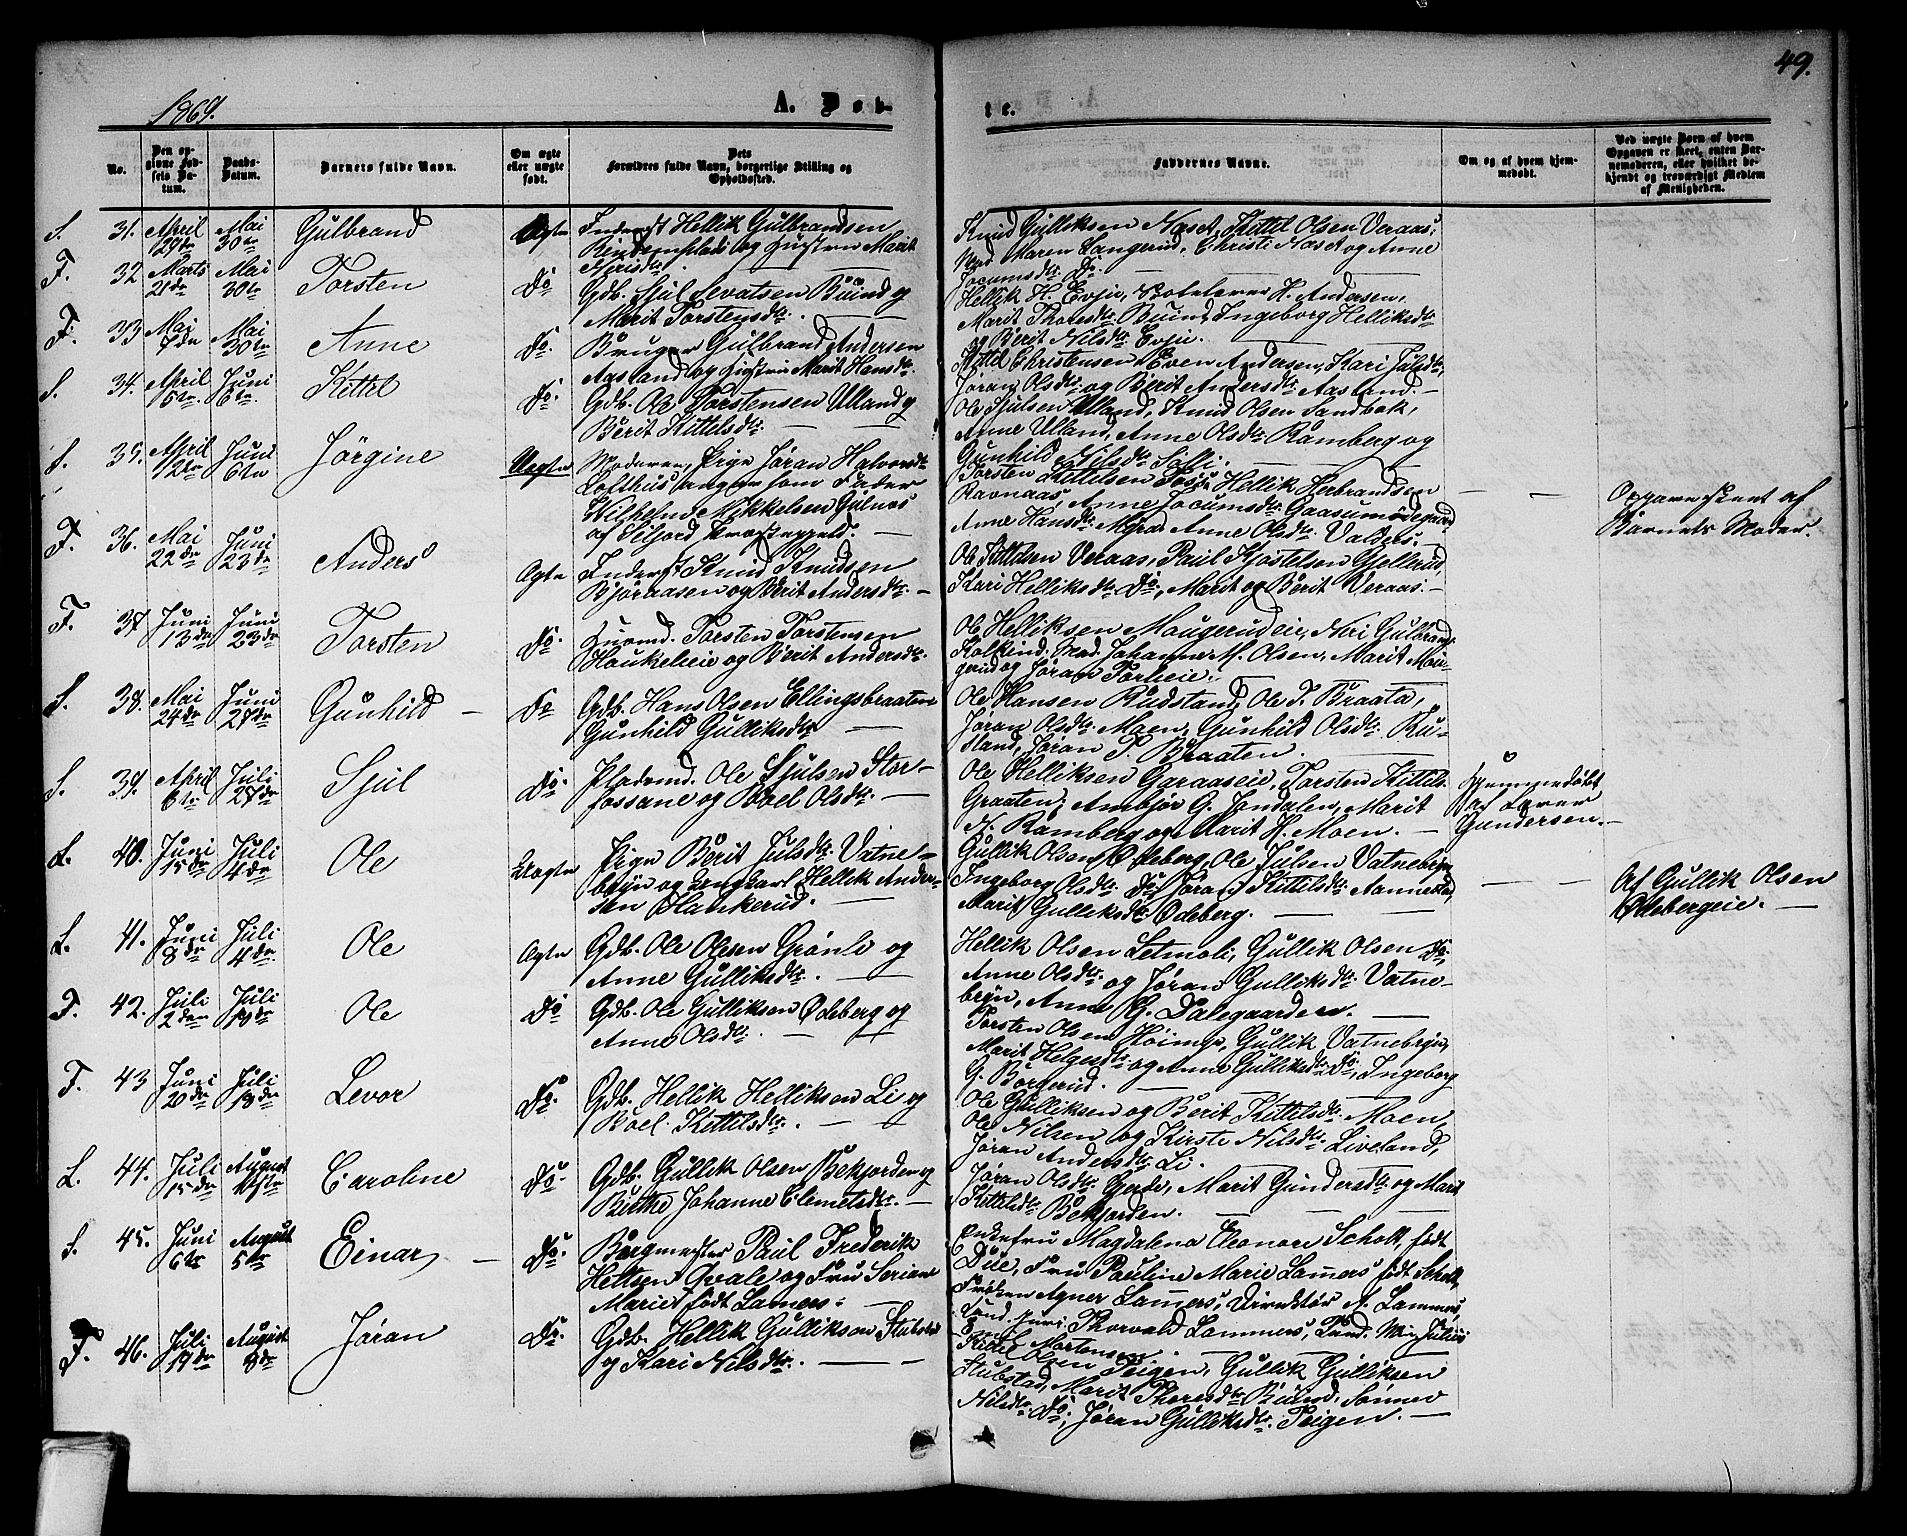 49.
1869.
A. Døb-
te.
No.
Den op-
givne Fød-
sels Da-
tum.
Daabs-
Datum.
Barnets fulde Navn.
Om ægte
eller uægte
født.
Dets
Forældres fulde Navn, borgerlige Stilling og
Opholdssted.
Faddernes Navne.
Om og af hvem hjem-
medøbt.
Ved uægte Børn af hvem
Opgaven er skeet, enten Bar-
nemoderen, eller hvilket be-
kjendt og troværdigt Medlem
af Menigheden.
S. 31. April 29de Mai 30te Gulbrand Ægte
Inderst Hellik Gulbrandsen
og Hustru Marit
Knud Gulliksen Naset, Kittil Olsen Veraas,
Mad. Maren Langerud, Christi Naset og Anne
Jocumsdtr. Do.
F. 32 Marts 21de Mai 30te Torsten Do
Gdb. Sjul Levorsen Buind og
Marit Torstensdtr.
Hellik H. Evju, H. Andersen,
Marit Thoresdtr. Buind, Ingeborg Helliksdtr.
og Berit Nilsdtr. Evju.
F. 33 Mai 7de Mai 30te Anne Do.
Bruger Gulbrand Andersen
Aasland og Hustru Marit Hansdtr.
Kittil Christensen, Even Andersen, Kari Julsdtr.,
Jøran Olsdtr. og Berit Andersdtr. Aasland.
S. 34. April 15te. Juni 6te. Kittil Do.
Gdb. Ole Torstensen Ulland og
Berit Kittelsdtr.
Ole Sjulsen Ulland, Knud Olsen Sandbak,
Anne Ulland, Anne Olsdtr. Ramberg og
Gunhild Nilsdtr.
S. 35. April 12te Juni 6te Jørgine Uægte
Moderen, Pige Jøran Halvorsdtr.
Lofthus angav som Fader
Wilhelm Mikkelsen Gulnas
af Siljord Præstegjeld.
Torsten Kittelsen Foss, Hellik Herbrandsen
Ravnaas, Anne Jocumsdtr. Gaasumødegaard,
Anne Hansdtr. Myra, Anne Olsdtr. Valders.
Opgave skeet af
Barnets Moder.
F. 36. Mai 22de Juni 23de Anders Ægte
Inderst Knud Knudsen
Bjøraasen og Berit Andersdtr.
Ole Kittilsen Veraas, Paul Kjøstelsen Gjellerud,
Kari Helliksdtr. Do., Marit og Berit Veraas.
F. 37 Juni 13de Juni 23de Torsten Do.
Huusmd. Torsten Torstensen
Haukelieie og Berit Andersdtr.
Ole Helliksen Mougerudeie, Niri Gulbrands.
Kolkind. Mad. Johanne M. Olsen, Marit Mou-
gerud og Jøran Torlieie.
S. 38. Mai 24de Juni 27de Gunhild Do
Gdb. Hans Olsen Ellingsbraaten
Gunhild Gulliksdtr.
Ole Hansen Rudstand, Ole T. Braata,
Jøran Olsdtr. Moen, Gunhild Olsdtr. Ru-
stand, Jøran T. Braaten.
S. 39. April 6te Juli 27de Sjul Do.
Pladsmd. Ole Sjulsen Stor-
fossane og Boel Olsdtr.
Ole Helliksen Ggraaseie, Torsten Kittils.
Graaten, Ambjør G. Jondalen, Marit
N. Ramberg og Marit H. Moen.
Hjemmedøbt
af Lærer
Gundersen.
L. 40. Juni 15de Juli 4de Ole Uægte
Pige Berit Julsdtr. Vatne-
bryn og Ungkarl Hellik Ander-
sen Blankerud.
Gullik Olsen Ødeberg, Ole Julsen Vatnebryn,
Ingeborg Olsdtr. Do., Jøran Kittilsdtr. Aannestad,
Marit Gulliksdtr. Ødeberg.
Af Gullik Olsen
Ødebergeie.
L. 41. Juni 8de Juli 4de Ole Ægte
Gdb. Ole Olsen Grønli og
Anne Gulliksdtr.
Hellik Olsen Letmoli, Gullik Olsen Do.,
Anne Olsdtr. og Jøran Gulliksdtr. Vatne-
bryn, Anne G. Dalegaarden.
F. 42. Juli 2den Juli 18de Ole Do
Gdb. Ole Gulliksen Ødeberg og
Anne Olsdtr.
Torsten Olsen, Gullik Vatnebryn,
Marit Helgesdtr. og Anne Gulliksdtr. Do., Ingeborg
G. Borgerud.
F. 43 Juni 20de Juli 18de Levor Do.
Gdb. Hellik Helliksen Li og
Boel Kittelsdtr.
Ole Gulliksen og Berit Kittelsdtr. Moen,
Ole Nilsen og Kirste Nilsdtr. Liveland,
Jøran Andersdtr. Li.
L. 44. Juli 15de August 1ste Caroline Do.
Gdb. Gullik Olsen Bekjorden og
Birthe Johanne Clemetsdtr.
Jøran Olsdtr. Gjerde, Marit Gundersdtr. og Marit
Kittelsdtr. Bekjorden.
S. 45. Juni 6te August 5te Einar Do.
Bergmester Paul Frederik
Hettsen Qvale og Fru Seriane
Marie født Lamers.
Enkefru Magdalena Eleonore Scholt, født
Due, Fru Pauline Marie Lamers født Scholt,
Frøken Agnes Lamers, Direktør A. Lammers,
Cand. juri. Thorvald Lammers, Cand. Min. Julius
Mortensen.
F. 46. Juli 19de August 8de Jøran Do.
Gdb. Hellik Gulliksen Stubstad
og Kari Nilsdtr.
Kittel Olsen Teigen, Gullik Gulliksen
Stubstad, Marit Thoresdtr. Buind, Sønnev
Nilsdtr. Do., Jøran Gulliksdtr. Teigen.